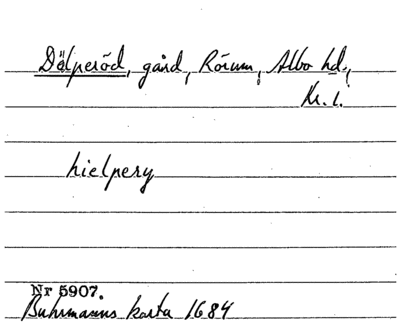 Dälperöd, gård, Rörum, Albo hd.,
Kr. l.
hielpery
Nr 5907.
Buhrmanns karta 1684